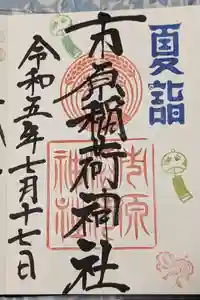 夏詣
市原稲荷神社
令和五年七月十七日
市原
神社